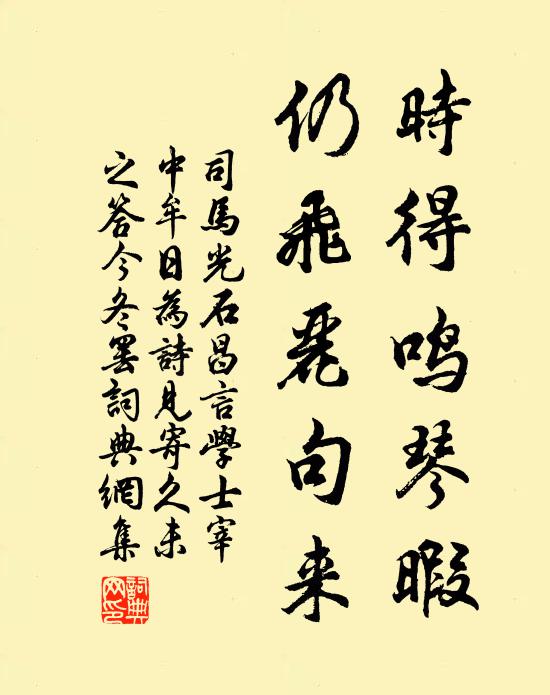 時得鳴琴暇
仍飛麗句来
司馬光石昌言學士宰
中牟日為詩見寄久未
之答今冬罢詞典網集
詞典網印